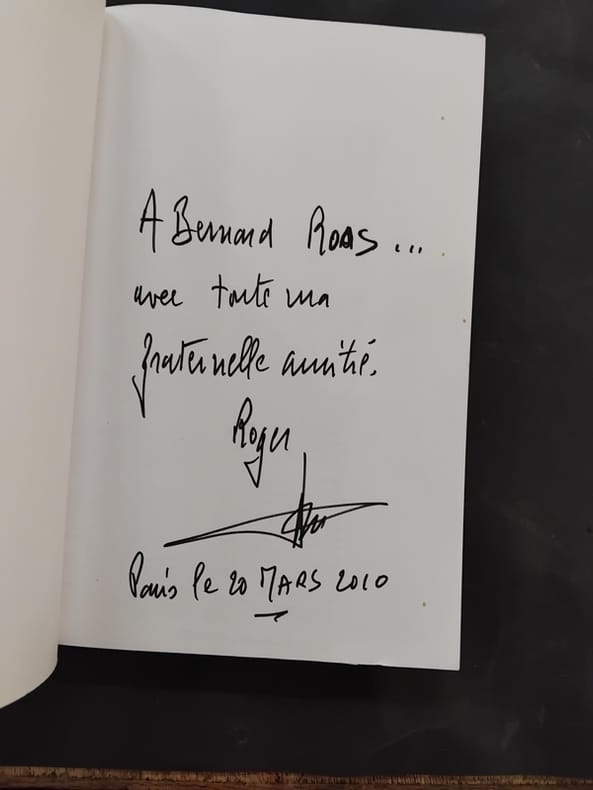 A Bernard ROAS ...
avec toute ma
fraternelle amitié.
Roger
Paris le 20 MARS 2010